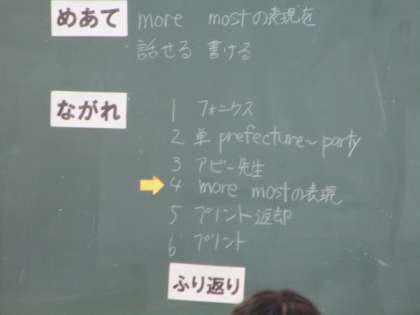 めあて more mostの表現を
話せる 書ける
ながれ
1 フォニクス
2 単 prefecture~party
3 アビー先生
4 more mostの表現
5 プリント返却
6 プリント
ふり返り